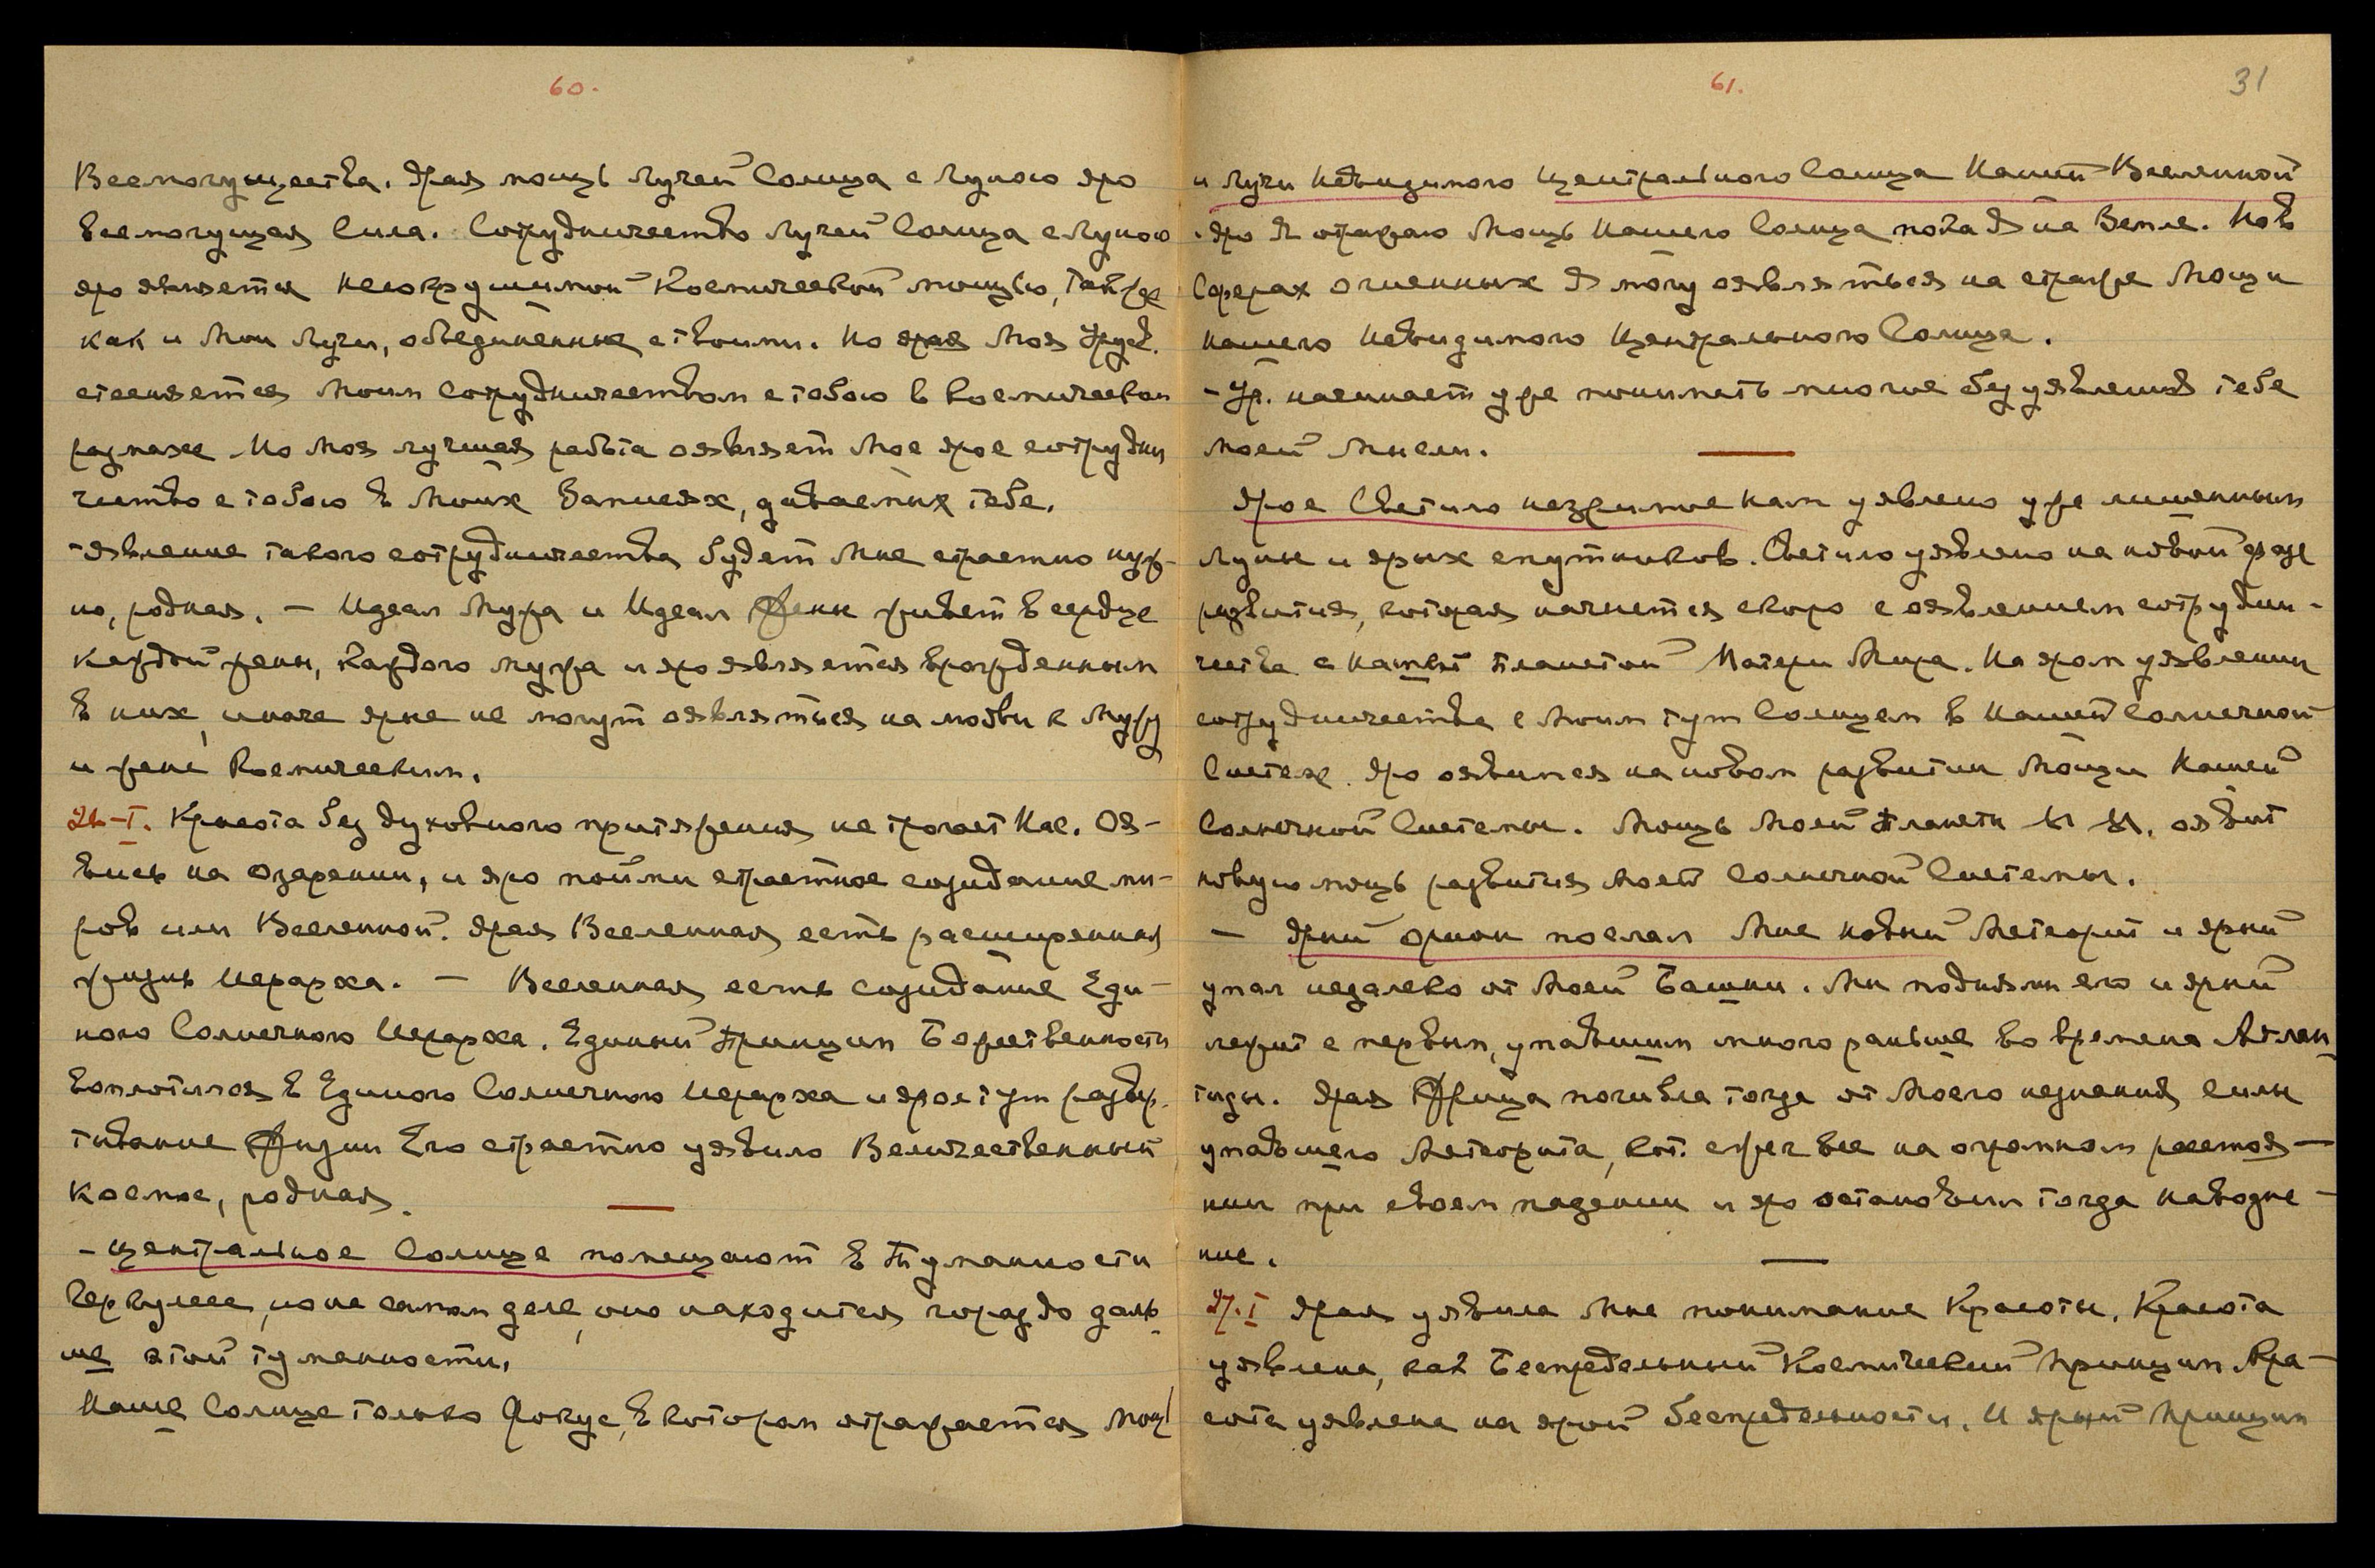 60.
Всемогущества. Ярая мощь лучей Солнца с Луною яро
всемогущая Сила. Сотрудничество лучей Солнца с Луною
яро является несокрушимой Космической мощью, так же
как и Мои Лучи, объединенные с твоими. Но ярая Моя Урусв.
стесняется Моим сотрудничеством с тобою в Космическом
размахе. Но Моя лучшая работа оявляет Мое ярое сотрудни
чество с тобою в Моих Записях, даваемых тебе.
- явление такого сотрудничества будет Мне страстно нуж-
но, родная. — Идеал Мужа и Идеал Жены живет в сердце
каждой жены, каждого мужа и яро является врожденным
в них, иначе ярые не могут оявляться на любви к Мужу
и жене Космическим.
26-I. Красота без духовного притяжения не трогает Нас. Оя-
вись на озарении, и яро пойми страстное созидание ми-
ров или Вселенной. Ярая Вселенная есть расширенная
жизнь Иерарха. — Вселенная есть созидание Еди-
ного Солнечного Иерарха. Единый Принцип Божественности
воплотился в Единого Солнечного Иерарха и ярое тут развер-
тывание Жизни Его страстно уявило Величественный
Космос, родная.
- Центральное Солнце помещают в Туманности
Геркулеса, но на самом деле, оно находится гораздо даль-
ше этой туманности.
Наше Солнце только Фокус, в котором отражается мощь
61. 31
и лучи Невидимого Центрального Солнца Нашей Вселенной
. Яро Я отражаю Мощь Нашего Солнца пока Я на Земле. Но в
Сферах огненных Я могу оявляться на страже Мощи
нашего Невидимого Центрального Солнца.
- Ур. начинает уже понимать многое без уявления тебе
моей Мысли.
Ярое Светило незримое нам уявлено уже лишенным
Луны и ярых спутников. Светило уявлено на новой фазе
развития, которая начнется скоро с оявлением сотрудни-
чества с нашей планетой Матери Мира. На яром уявлении
сотрудничества с Моим тут Солнцем в Нашей Солнечной
Системе. Яро оявимся на новом развитии Мощи Нашей
Солнечной Системы. Мощь Моей Планеты оявит
новую мощь развития Моей Солнечной Системы.
— Ярый Орион послал Мне новый Метеорит и ярый
упал недалеко от Моей Башни. Мы подняли его и ярый
лежит с первым, упавшим много раньше во времена Атлан
тиды. Ярая Жрица погибла тогда от Моего незнания силы
упавшего Метеорита, кот. сжег все на огромном расстоя—
нии при своем падении и яро остановил тогда наводне—
ние.
27.I Ярая уявила Мне понимание Красоты. Красота
уявлена, как Беспредельный Космический Принцип. Кра—
сота уявлена на ярой беспредельности. И ярый Принцип